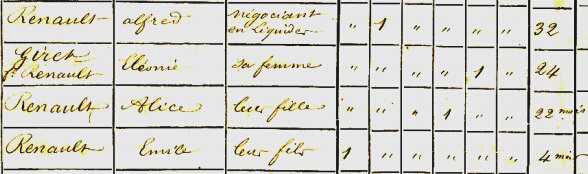 Renault alfred négociant en liquides „ 1 „ „ „ „ 32
Giret f. Renault Cléonie sa femme „ „ „ „ 1 „ 24
Renault Alice leur fille „ „ „ 1 „ „ 22 mois
Renault Emile leur fils 1 „ „ „ „ „ 4 mois